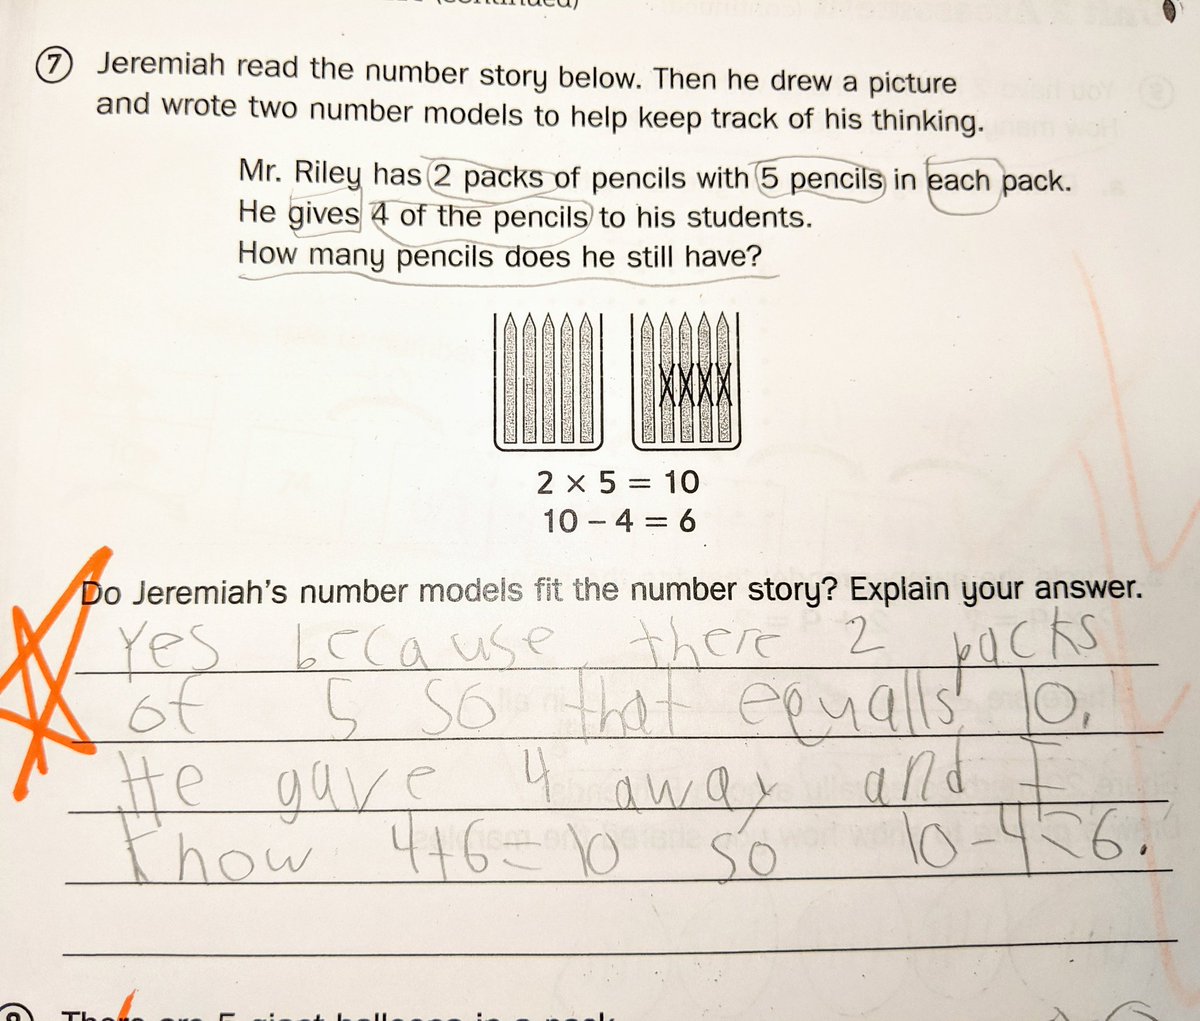 7 Jeremiah read the number story below. Then he drew a picture
and wrote two number models to help keep track of his thinking.
Mr. Riley has 2 packs of pencils with 5 pencils in each pack.
He gives 4 of the pencils to his students.
How many pencils does he still have?
2 × 5 = 10
10 – 4 = 6
Do Jeremiah's number models fit the number story? Explain your answer.
Yes because there 2 packs
of 5 so that equalls 10.
He gave 4 away and I
know 4+6=10 so 10-4=6.